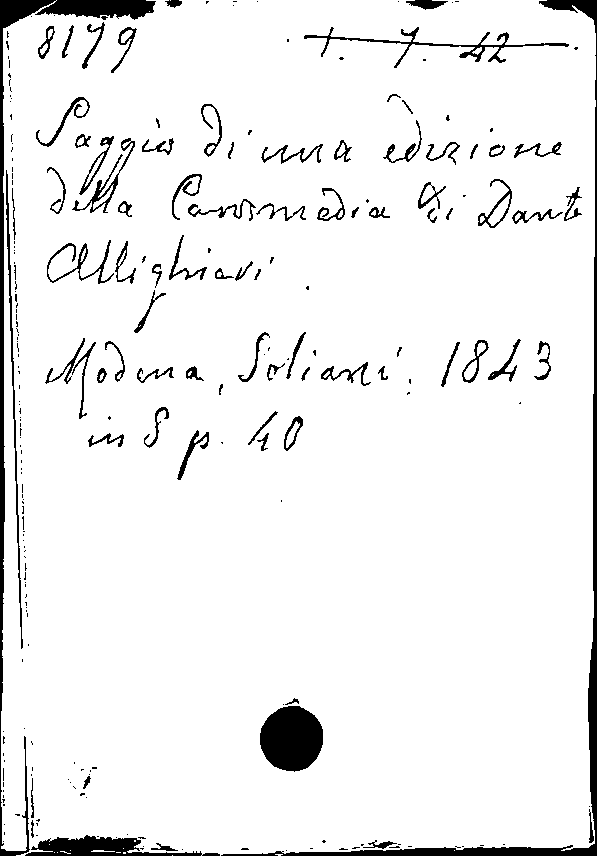 8179 1. 7. 42
Saggio di una edizione
della Commedia di Dante
Allighieri.
Modena, Soliani. 1843
in 8 p. 40